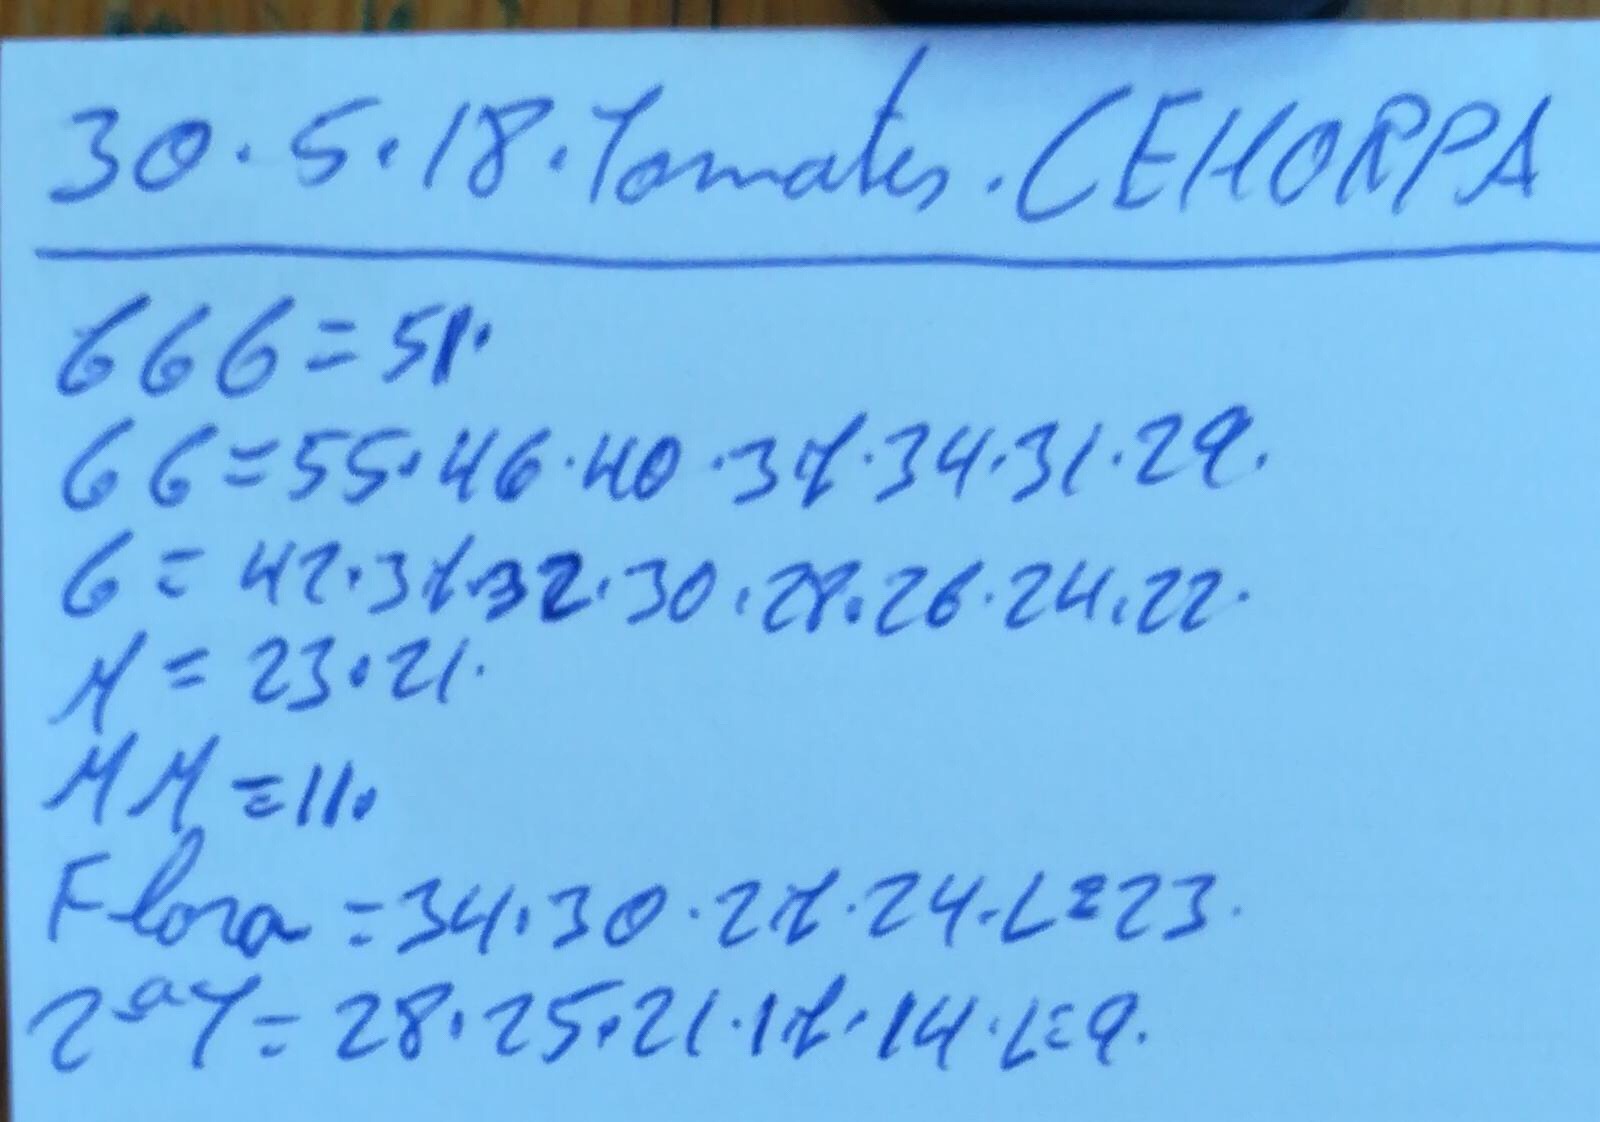 30.5.18.Tomates.CEHORPA
GGG=51.
GG=55.46.40.37.34.31.29.
G=42.37.32.30.28.26.24.22.
M=23.21.
MM=11.
Flora=34.30.27.24.L=23.
2ªT=28.25.21.17.14.L=9.